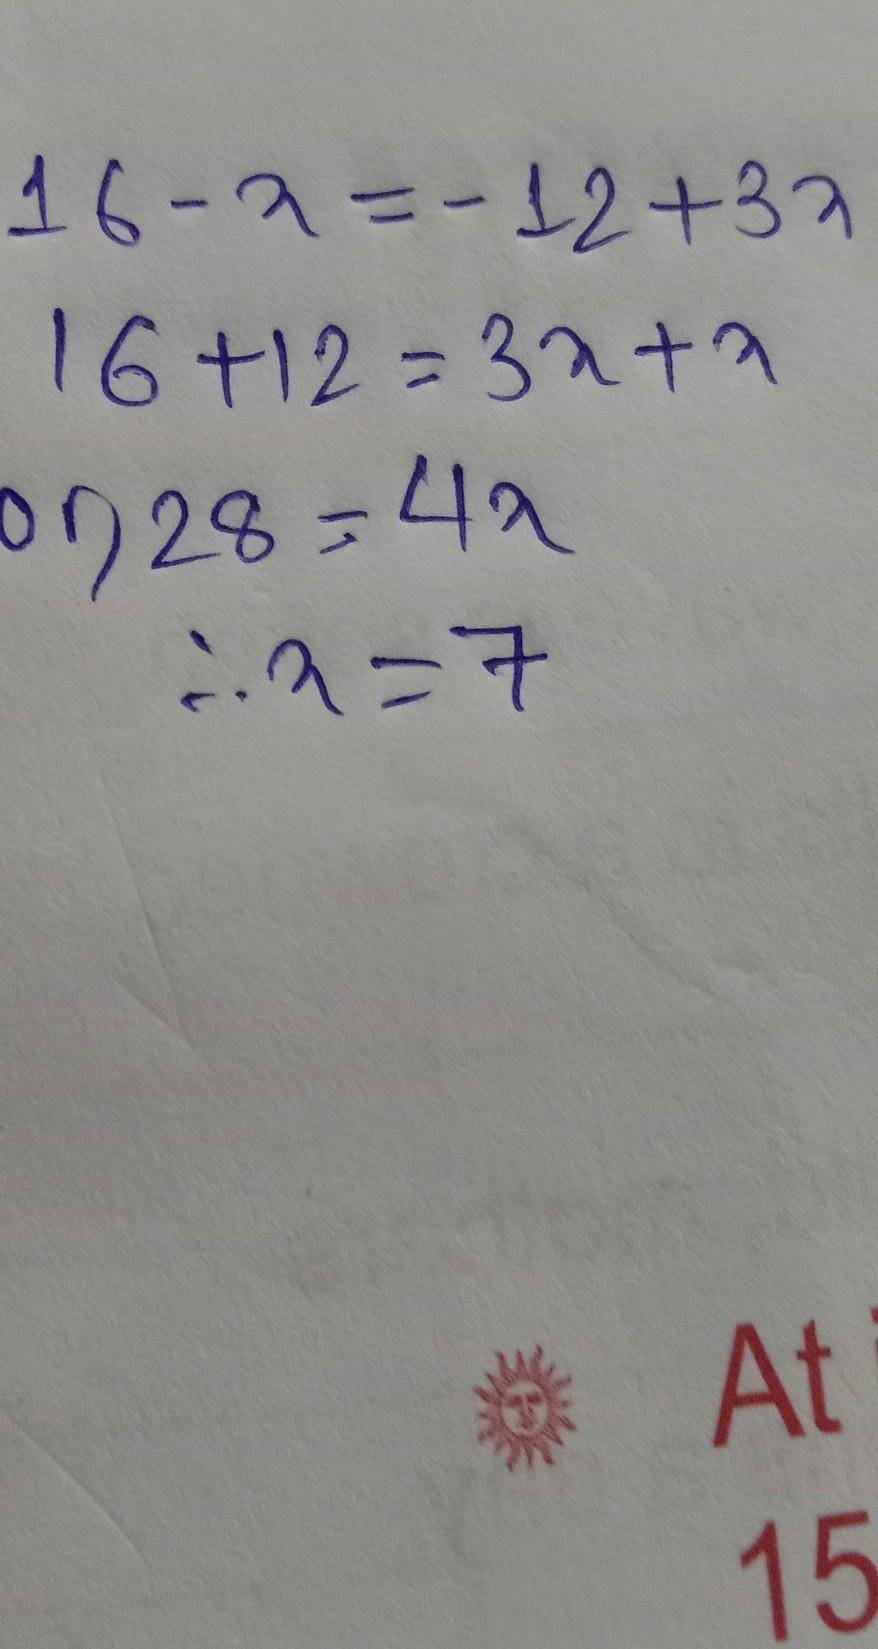 16 - x = - 12 + 3x
16 + 12 = 3x + x
or, 28 = 4x
∴ x = 7
At
15